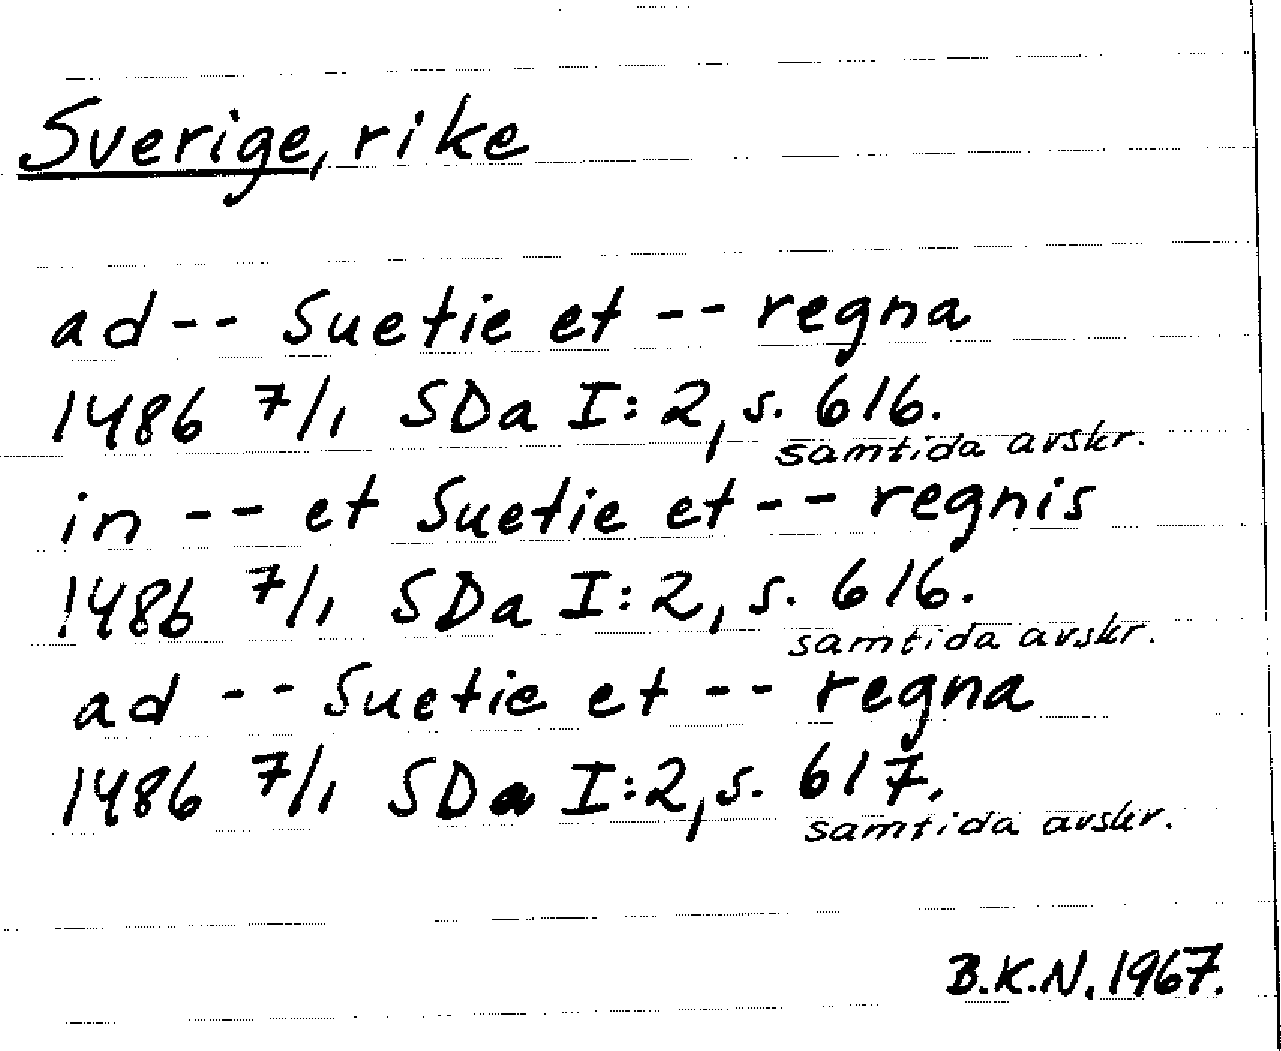 Sverige, rike
ad -- Suetie et -- regna
1486 7/1 SDa I:2, s. 616.
samtida avskr.
in -- et Suetie et -- regnis
1486 7/1 SDa I:2, s. 616.
samtida avskr.
ad -- Suetie et -- regna
1486 7/1 SDa I:2, s. 617.
samtida avskr.
B.K.N. 1967.